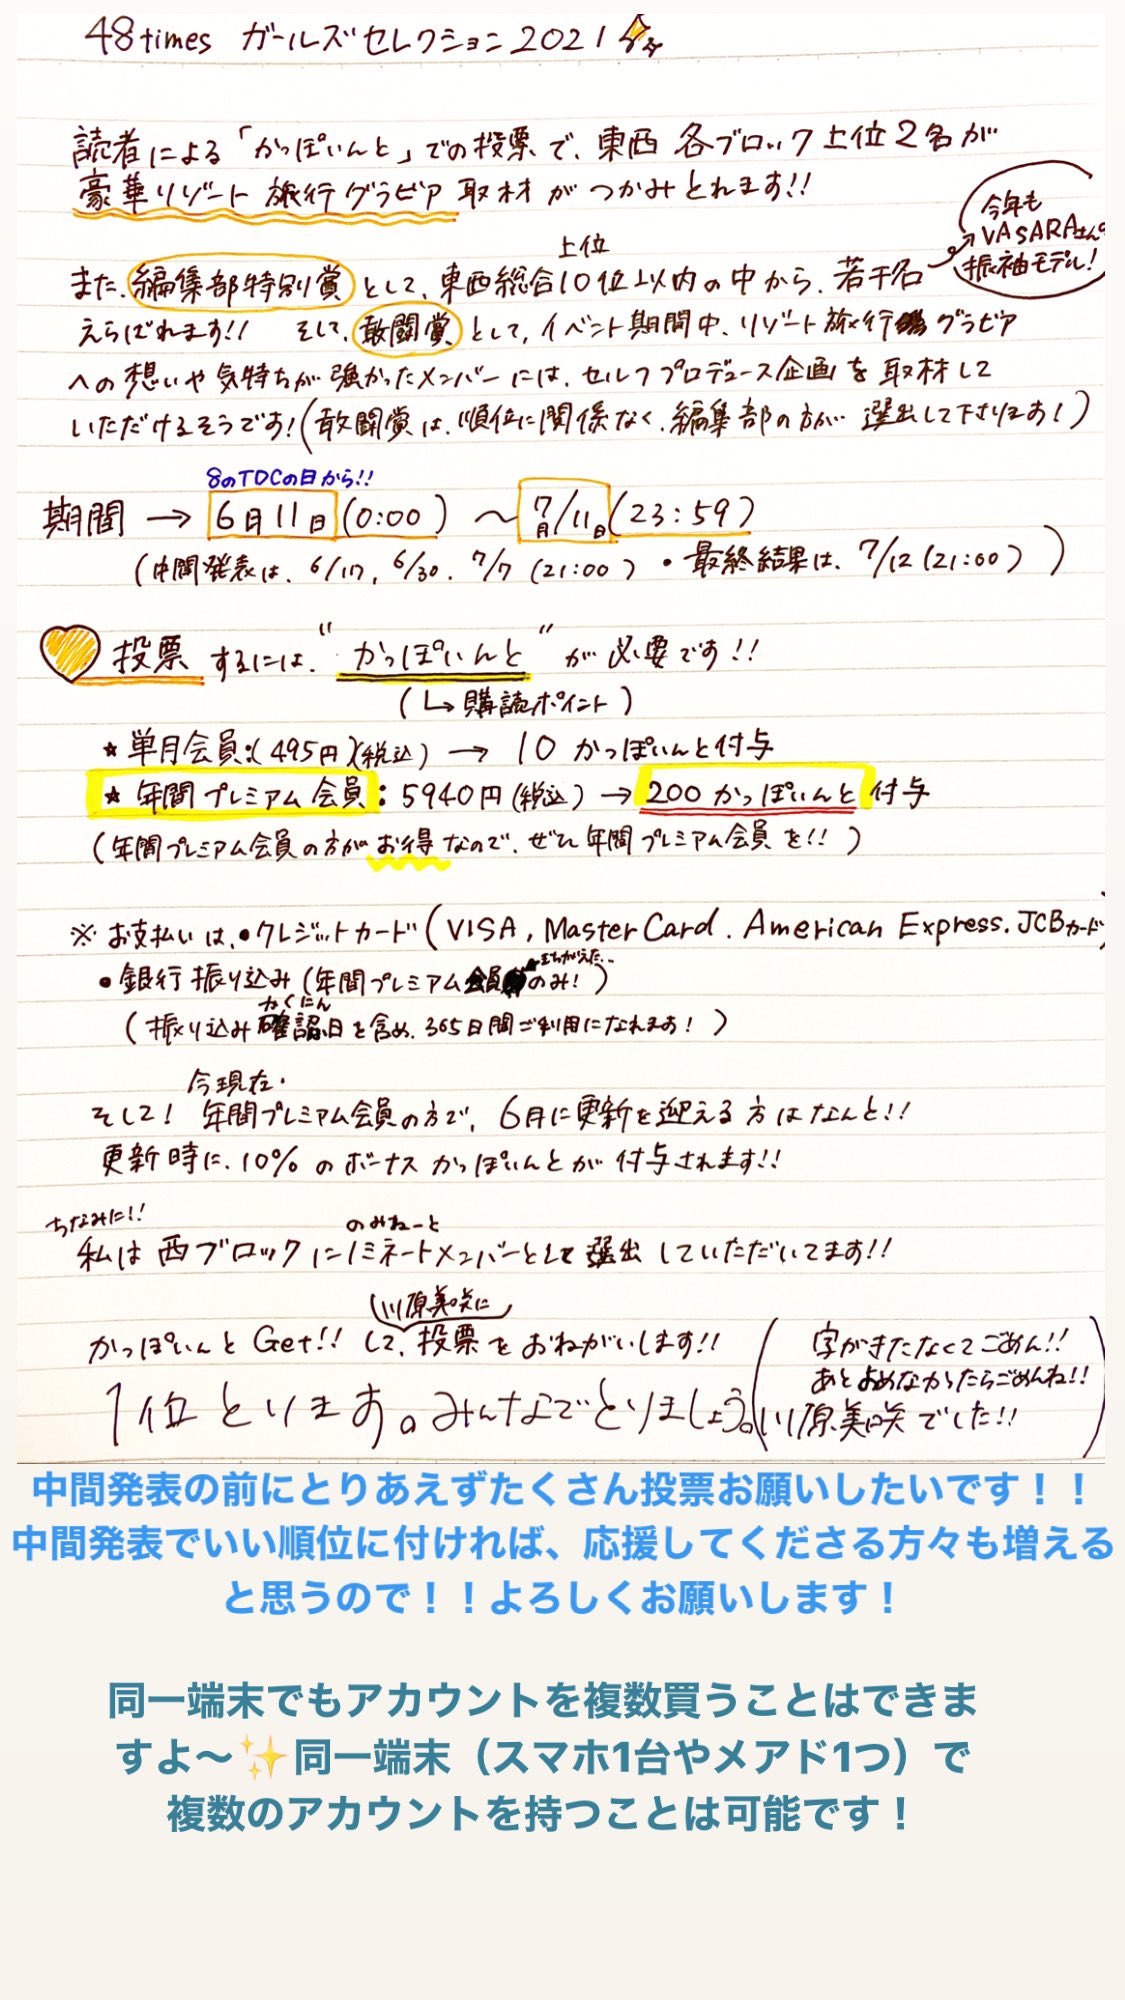 48times ガールズセレクション2021
読者による「かっぽいんと」での投票で、東西 各ブロック上位2名が
豪華リゾート旅行グラビア取材がつかみとれます!!
今年も
VASARAさんの
振袖モデル!
上位
また、編集部特別賞として、東西総合10位以内の中から、若干名
えらばれます!! そして、敢闘賞として、イベント期間中、リゾート旅行グラビア
への想いや気持ちが強かったメンバーには、セルフプロデュース企画を取材して
いただけるそうです!(敢闘賞は、順位に関係なく、編集部の方が選出して下さります!)
8のTDCの日から!!
期間 → 6月11日(0:00) 〜 7月/11日(23:59)
(中間発表は、6/17, 6/30, 7/7 (21:00) ・最終結果は、7/12(21:00))
投票するには、"かっぽいんと"が必要です!!
(↳購読ポイント)
★単月会員:(495円)(税込) → 10かっぽいんと付与
★年間プレミアム会員:5940円(税込) → 200かっぽいんと付与
(年間プレミアム会員の方がお得なので、ぜひ年間プレミアム会員を!!)
※お支払いは、・クレジットカード(VISA, MasterCard. American Express. JCBカード)
まちがえた..
・銀行振り込み(年間プレミアム会員のみ!)
かくにん
(振り込み確認日を含め、365日間ご利用になれます!)
今現在・
そして! 年間プレミアム会員の方で、6月に更新を迎える方はなんと!!
更新時に、10%のボーナスかっぽいんとが付与されます!!
ちなみに!!
のみねーと
私は西ブロックにノミネートメンバーとして選出していただいてます!!
川原美咲に
かっぽいんとGet!! して、投票をおねがいします!!
1位とります。みんなでとりましょう。
(字がきたなくてごめん!!
あとよめなかったらごめんね!!
川原美咲でした!!)
中間発表の前にとりあえずたくさん投票お願いしたいです！！
中間発表でいい順位に付ければ、応援してくださる方々も増える
と思うので！！よろしくお願いします！
同一端末でもアカウントを複数買うことはできま
すよ〜✨同一端末（スマホ1台やメアド1つ）で
複数のアカウントを持つことは可能です！